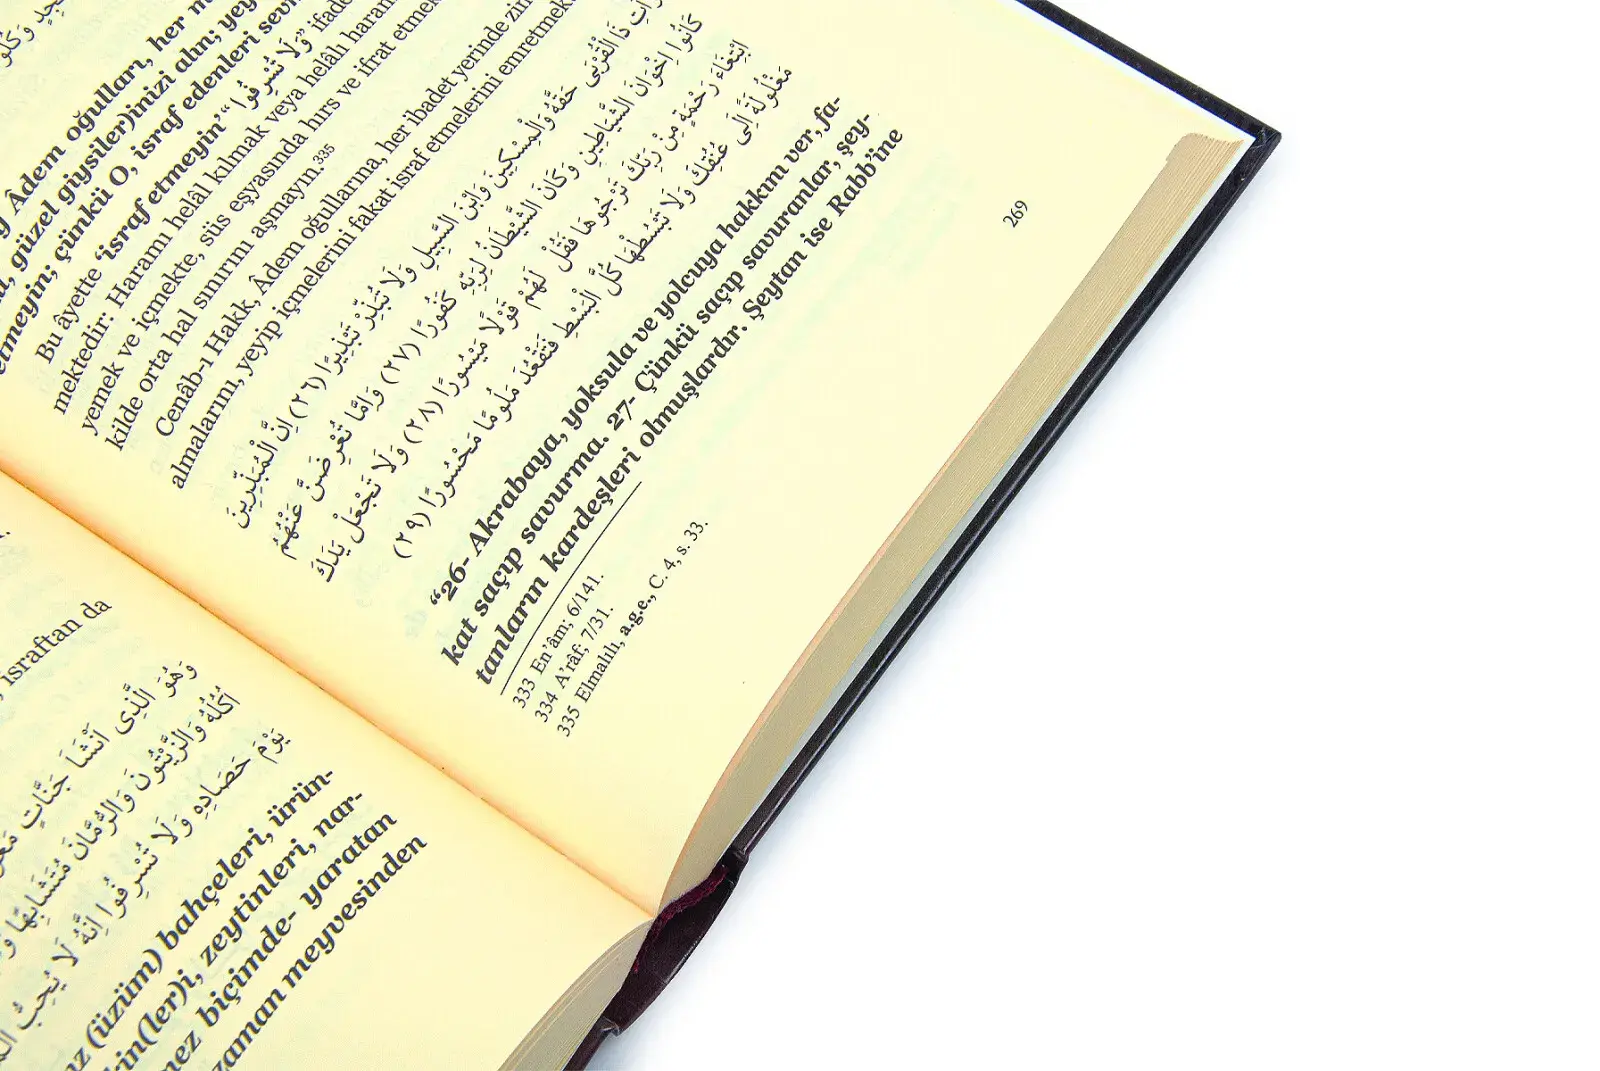 israftan da
وَهُوَ الَّذِى اَنْشَاَ جَنَّاتٍ
اُكُلُهُ وَالزَّيْتُونَ وَالرُّمَّانَ مُتَشَابِهًا
يَوْمَ حَصَادِهِ وَلَا تُسْرِفُوا اِنَّهُ لَا يُحِبُّ
(üzüm) bahçeleri, ürün-
kin(ler)i, zeytinleri, nar-
mez biçimde- yaratan
zaman meyvesinden
Âdem oğulları, her
güzel giysiler)inizi alın;
çünkü O, israf edenleri
Bu âyette ‘israf etmeyin’ “وَلَا تُسْرِفُوا”
mektedir: Haramı helâl kılmak veya helâlı haram
yemek ve içmekte, süs eşyasında hırs ve ifrat
kilde orta hal sınırını aşmayın.335
Cenâb-ı Hakk, Âdem oğullarına, her ibadet yerinde
almalarını, yeyip içmelerini fakat israf etmelerini
ذَا الْقُرْبٰى حَقَّهُ وَالْمِسْكِينَ وَابْنَ السَّبِيلِ وَلَا تُبَذِّرْ تَبْذِيرًا (٢٦) اِنَّ الْمُبَذِّرِينَ
كَانُوا اِخْوَانَ الشَّيَاطِينِ وَكَانَ الشَّيْطَانُ لِرَبِّهِ كَفُورًا (٢٧) وَاِمَّا تُعْرِضَنَّ عَنْهُمُ
ابْتِغَاءَ رَحْمَةٍ مِنْ رَبِّكَ تَرْجُوهَا فَقُلْ لَهُمْ قَوْلًا مَيْسُورًا (٢٨) وَلَا تَجْعَلْ يَدَكَ
مَغْلُولَةً اِلٰى عُنُقِكَ وَلَا تَبْسُطْهَا كُلَّ الْبَسْطِ فَتَقْعُدَ مَلُومًا مَحْسُورًا (٢٩)
“26- Akrabaya, yoksula ve yolcuya hakkını ver, fa-
kat saçıp savurma. 27- Çünkü saçıp savuranlar, şey-
tanların kardeşleri olmuşlardır. Şeytan ise Rabb’ine
333 En’âm; 6/141.
334 A’râf; 7/31.
335 Elmalılı, a.g.e., C. 4, s. 33.
269